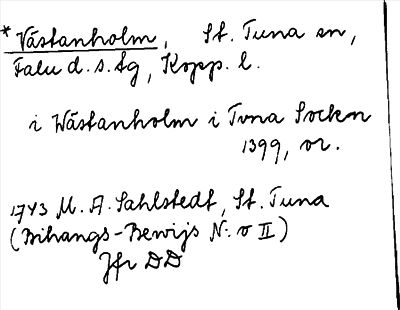 * Västanholm, St. Tuna sn,
Falu d. s. lg, Kopp. l.
i Wästanholm i Tvna Sockn
1399, or.
1743 M. A. Sahlstedt, St. Tuna
(Bihangs-Bewijs N:o II)
Jfr DD